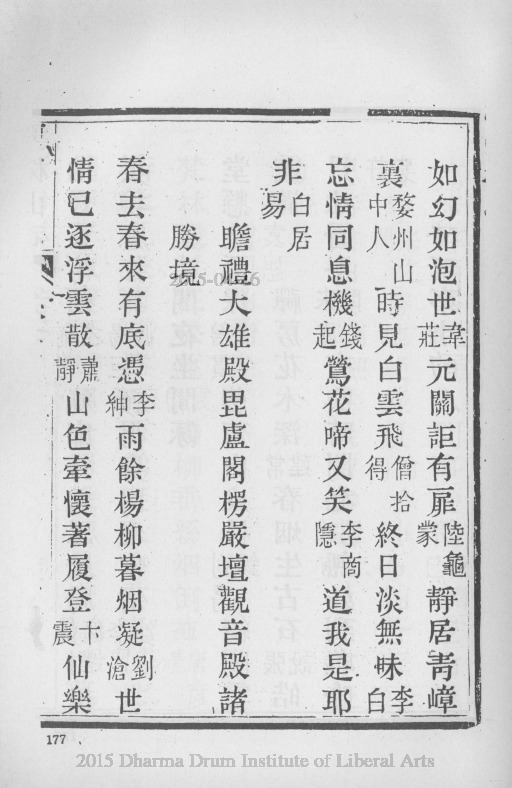 如幻如泡世韋莊元關詎有扉陸龜蒙靜居青嶂
裏婺州山中人時見白雲飛僧拾得終日淡無味李白
忘情同息機錢起鶯花啼又笑李商隱道我是耶
非白居易
瞻禮大雄殿毘盧閣楞嚴壇觀音殿諸
勝境
春去春來有底憑李紳雨餘楊柳暮烟凝劉滄世
情已逐浮雲散蕭靜山色牽懷著履登卞震仙樂
177
2015 Dharma Drum Institute of Liberal Arts